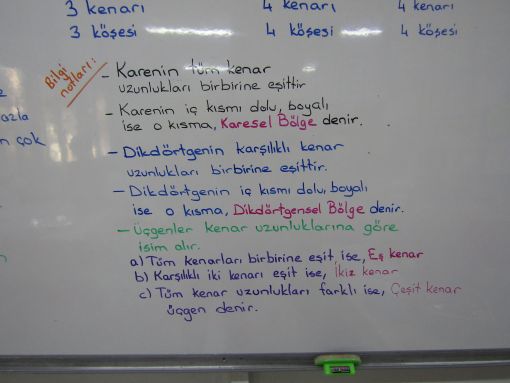 3 kenarı 4 kenarı 4 kenarı
3 köşesi 4 köşesi 4 köşesi
Bilgi
notları:
- Karenin tüm kenar
uzunlukları birbirine eşittir
- Karenin iç kısmı dolu, boyalı
ise o kısma, Karesel Bölge denir.
- Dikdörtgenin karşılıklı kenar
uzunlukları birbirine eşittir.
- Dikdörtgenin iç kısmı dolu, boyalı
ise o kısma, Dikdörtgensel Bölge denir.
- Üçgenler kenar uzunluklarına göre
isim alır.
a) Tüm kenarları birbirine eşit ise, Eş kenar
b) Karşılıklı iki kenarı eşit ise, İkiz kenar
c) Tüm kenar uzunlukları farklı ise, Çeşit kenar
üçgen denir.
çok